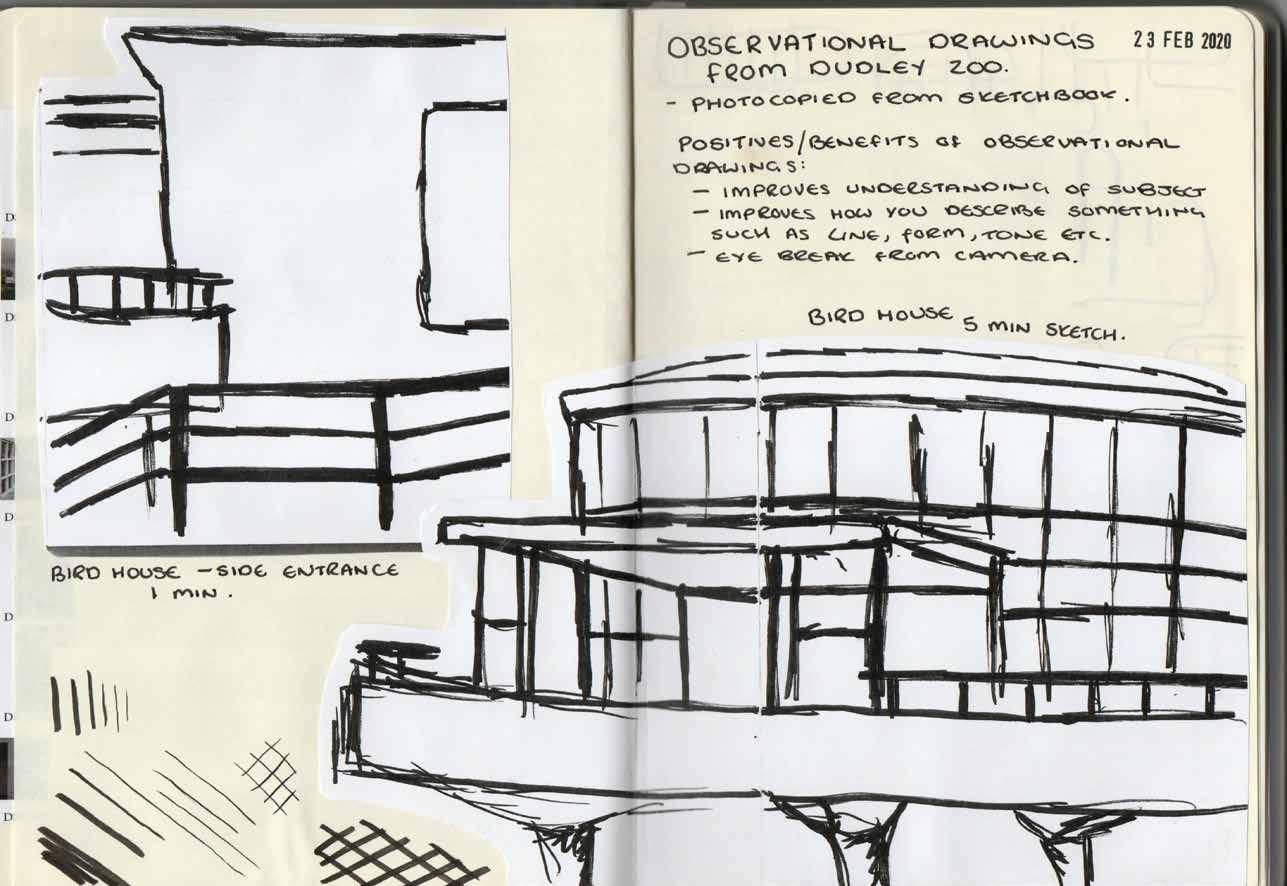 OBSERVATIONAL DRAWINGS
FROM DUDLEY ZOO.
23 FEB 2020
- PHOTOCOPIED FROM SKETCHBOOK.
POSITIVES/BENEFITS OF OBSERVATIONAL
DRAWINGS:
- IMPROVES UNDERSTANDING OF SUBJECT
- IMPROVES HOW YOU DESCRIBE SOMETHING
SUCH AS LINE, FORM, TONE ETC.
- EYE BREAK FROM CAMERA.
BIRD HOUSE 5 MIN SKETCH.
BIRD HOUSE - SIDE ENTRANCE
1 MIN.